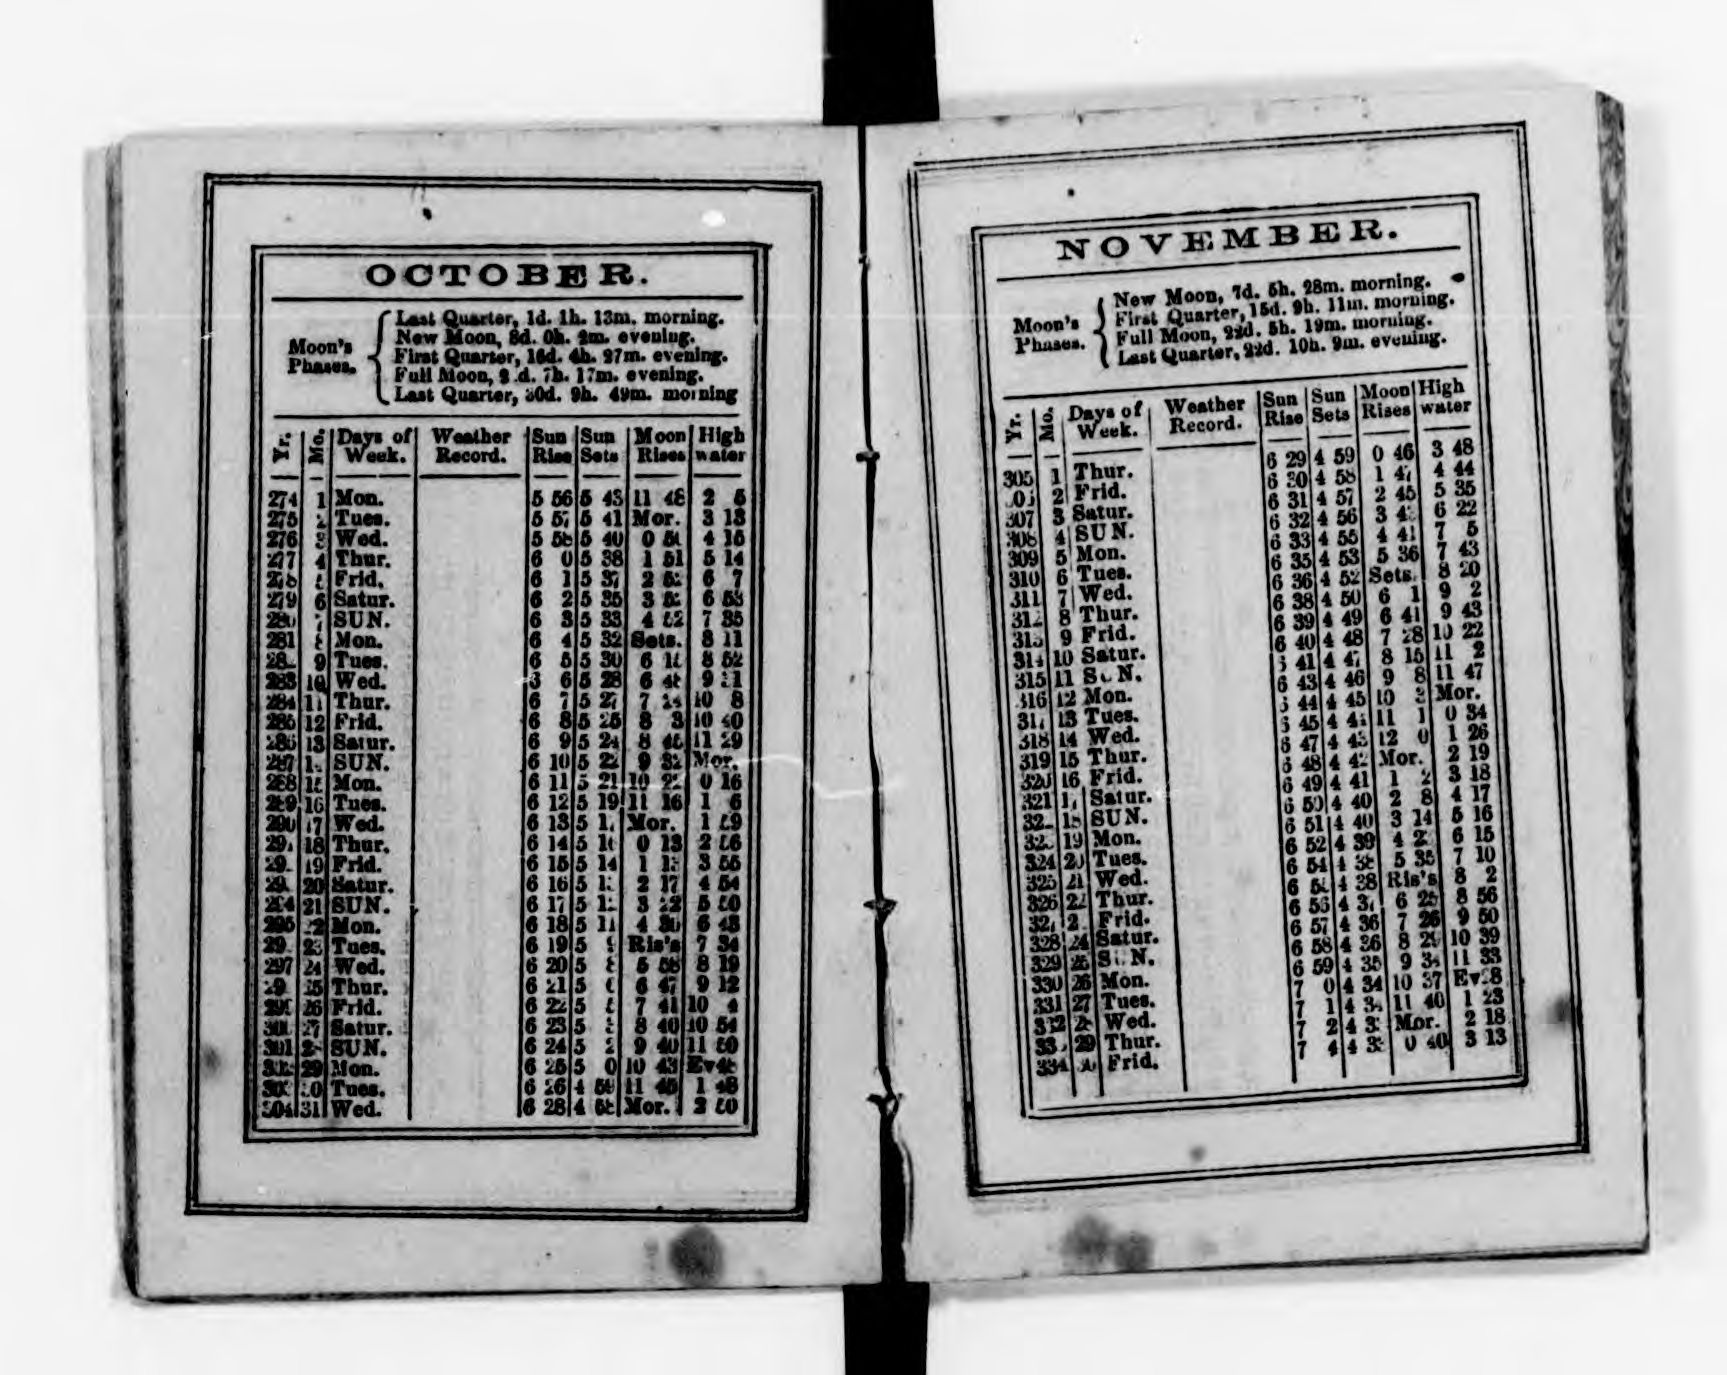 OCTOBER.
Moon's Phases.
Last Quarter, 1d. 1h. 13m. morning.
New Moon, 8d. 0h. 2m. evening.
First Quarter, 16d. 4h. 27m. evening.
Full Moon, 7h. 17m. evening.
Last Quarter, 30d. 9h. 49m. morning
Yr. Mo. Days of Week. Weather Record. Sun Rise Sun Sets Moon Rises High water
274 1 Mon. 5 56 5 43 11 48 2 5
275 2 Tues. 5 57 5 41 Mor. 3 13
276 3 Wed. 5 58 5 40 0 4 15
277 4 Thur. 6 0 5 38 1 51 5 14
Frid. 6 1 5 37 2 52 6 7
279 6 Satur. 6 2 5 35 3 6 53
SUN. 6 3 5 33 4 52 7 35
281 Mon. 6 4 5 32 Sets. 8 11
9 Tues. 6 5 5 30 6 8 52
283 10 Wed. 6 6 5 28 6 9
284 11 Thur. 6 7 5 27 7 10 8
285 12 Frid. 6 8 5 25 8 3 10
285 13 Satur. 6 9 5 24 8 11 29
287 SUN. 6 10 5 22 9 32 Mor.
288 15 Mon. 6 11 5 21 10 22 0 16
289 16 Tues. 6 12 5 19 11 16 1 6
290 17 Wed. 6 13 5 Mor. 1 59
18 Thur. 6 14 5 0 13 2 56
19 Frid. 6 15 5 14 1 3 55
20 Satur. 6 16 5 2 17 4 54
21 SUN. 6 17 5 3 22 5 50
295 22 Mon. 6 18 5 11 4 30 6 43
23 Tues. 6 19 5 Ris's 7 34
297 24 Wed. 6 20 5 5 58 8 19
25 Thur. 6 21 5 6 47 9 12
26 Frid. 6 22 5 7 41 10 4
27 Satur. 6 23 5 8 40 10 54
301 SUN. 6 24 5 2 9 40 11 50
29 Mon. 6 25 5 0 10 43 Ev
Tues. 6 26 4 59 11 45 1 48
304 31 Wed. 6 28 4 Mor. 2 50
NOVEMBER.
Moon's Phases.
New Moon, 7d. 5h. 28m. morning.
First Quarter, 15d. 9h. 11m. morning.
Full Moon, 22d. 5h. 19m. morning.
Last Quarter, 22d. 10h. 9m. evening.
Yr. Mo. Days of Week. Weather Record. Sun Rise Sun Sets Moon Rises High water
305 1 Thur. 6 29 4 59 0 46 3 48
2 Frid. 6 30 4 58 1 47 4 44
307 3 Satur. 6 31 4 57 2 45 5 35
308 4 SUN. 6 32 4 56 3 6 22
309 5 Mon. 6 33 4 55 4 41 7 5
310 6 Tues. 6 35 4 53 5 36 7 43
311 7 Wed. 6 36 4 52 Sets. 8 20
8 Thur. 6 38 4 50 6 1 9 2
9 Frid. 6 39 4 49 6 41 9 43
314 10 Satur. 6 40 4 48 7 28 10 22
315 11 SUN. 41 4 47 8 15 11 2
316 12 Mon. 6 43 4 46 9 8 11 47
13 Tues. 44 4 45 10 3 Mor.
318 14 Wed. 6 45 4 11 1 0 34
319 15 Thur. 6 47 4 43 12 0 1 26
320 16 Frid. 48 4 42 Mor. 2 19
321 Satur. 6 49 4 41 1 2 3 18
SUN. 6 50 4 40 2 8 4 17
19 Mon. 6 51 4 40 3 14 5 16
324 20 Tues. 6 52 4 39 4 6 15
325 21 Wed. 6 54 4 38 5 35 7 10
326 22 Thur. 6 4 38 Ris's 8 2
Frid. 6 56 4 6 25 8 56
328 24 Satur. 6 57 4 36 7 26 9 50
329 25 SUN. 6 58 4 36 8 10 39
330 26 Mon. 6 59 4 35 9 11 33
331 27 Tues. 7 0 4 34 10 37 Ev
Wed. 7 1 4 11 40 1 23
29 Thur. 7 2 4 Mor. 2 18
334 Frid. 7 4 4 0 40 3 13